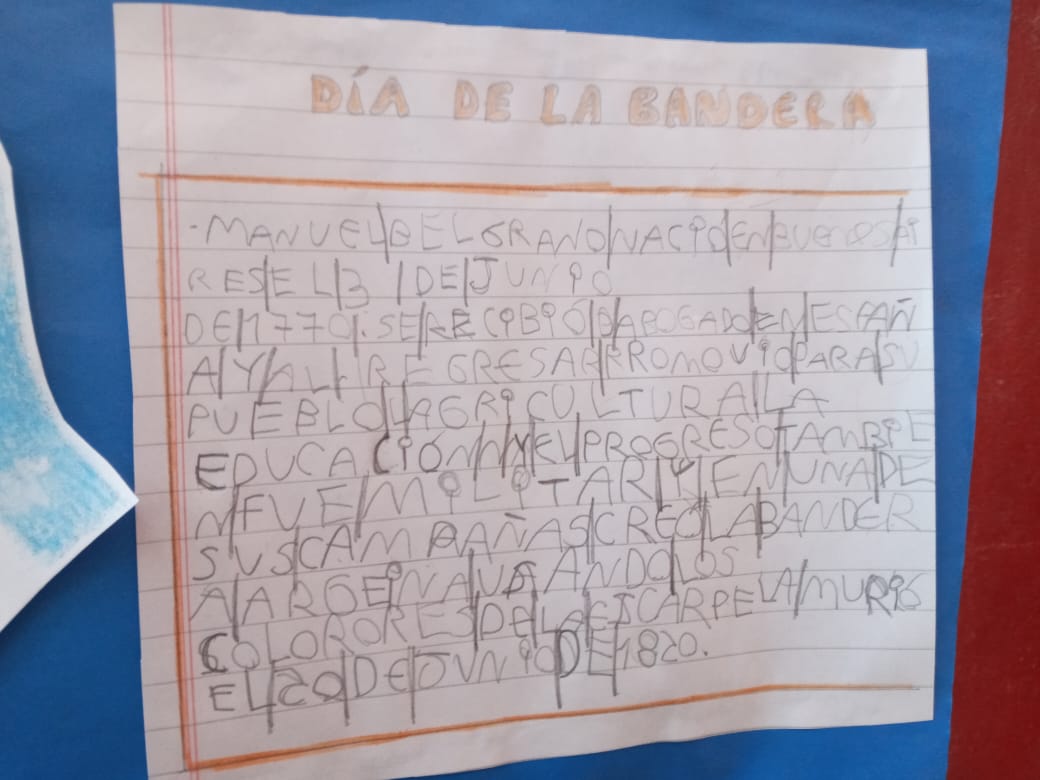 DÍA DE LA BANDERA
-MANUEL|BELGRANO|NACIO|EN|BUENOS|AI
RES|EL|3|DE|JUNIO
DE|1770|.SE|RECIBIÓ|D|ABOGADO|EN|ESPAÑ
A|Y|AL|REGRESAR|PROMOVIO|PARA|SU
PUEBLO|LAGRICULTURA|LA
EDUCACIÓN|Y|EL|PROGRESO|TAMBIE
N|FUE|MILITAR|Y|EN|UNA|DE
SUS|CAMPAÑAS|CREO|LA|BANDER
A|ARGEINA|USANDO|LOS
COLORORES|DE|LA|ESCARPELA|MURIO
EL|20|DE|JUNIO|DE|1820.